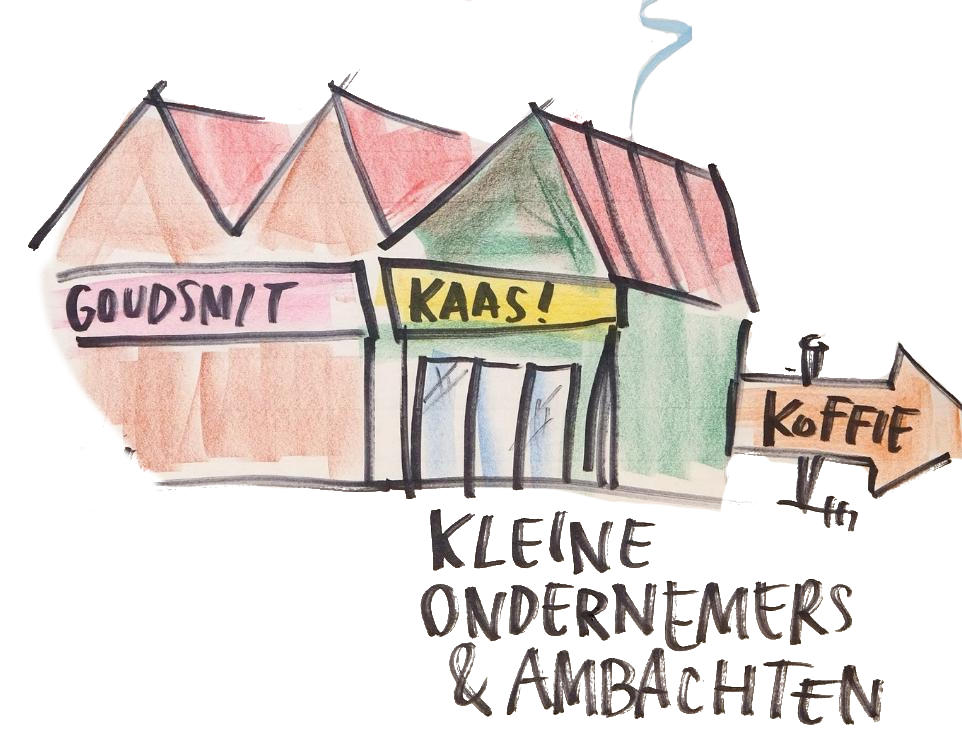 GOUDSMIT
KAAS!
KOFFIE
KLEINE
ONDERNEMERS
& AMBACHTEN